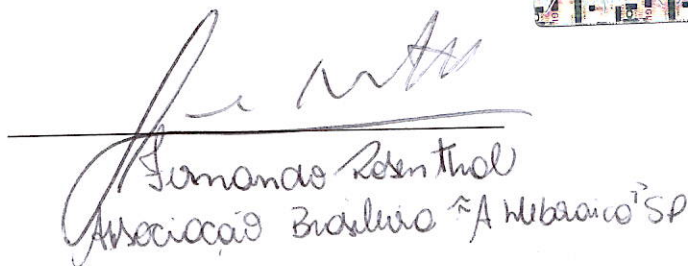 Fernando Rosenthal
Associação Brasileira "A Hebraica" SP